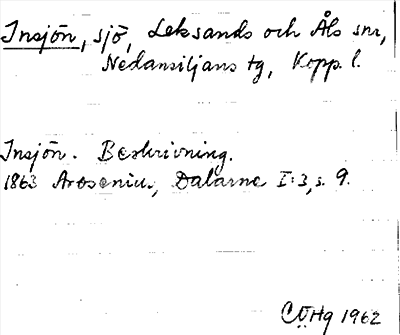 Insjön, sjö, Leksands och Åls snr,
Nedansiljans tg, Kopp. l.
Insjön. Beskrivning.
1863 Arosenius, Dalarne I:3, s. 9.
CÜHg 1962